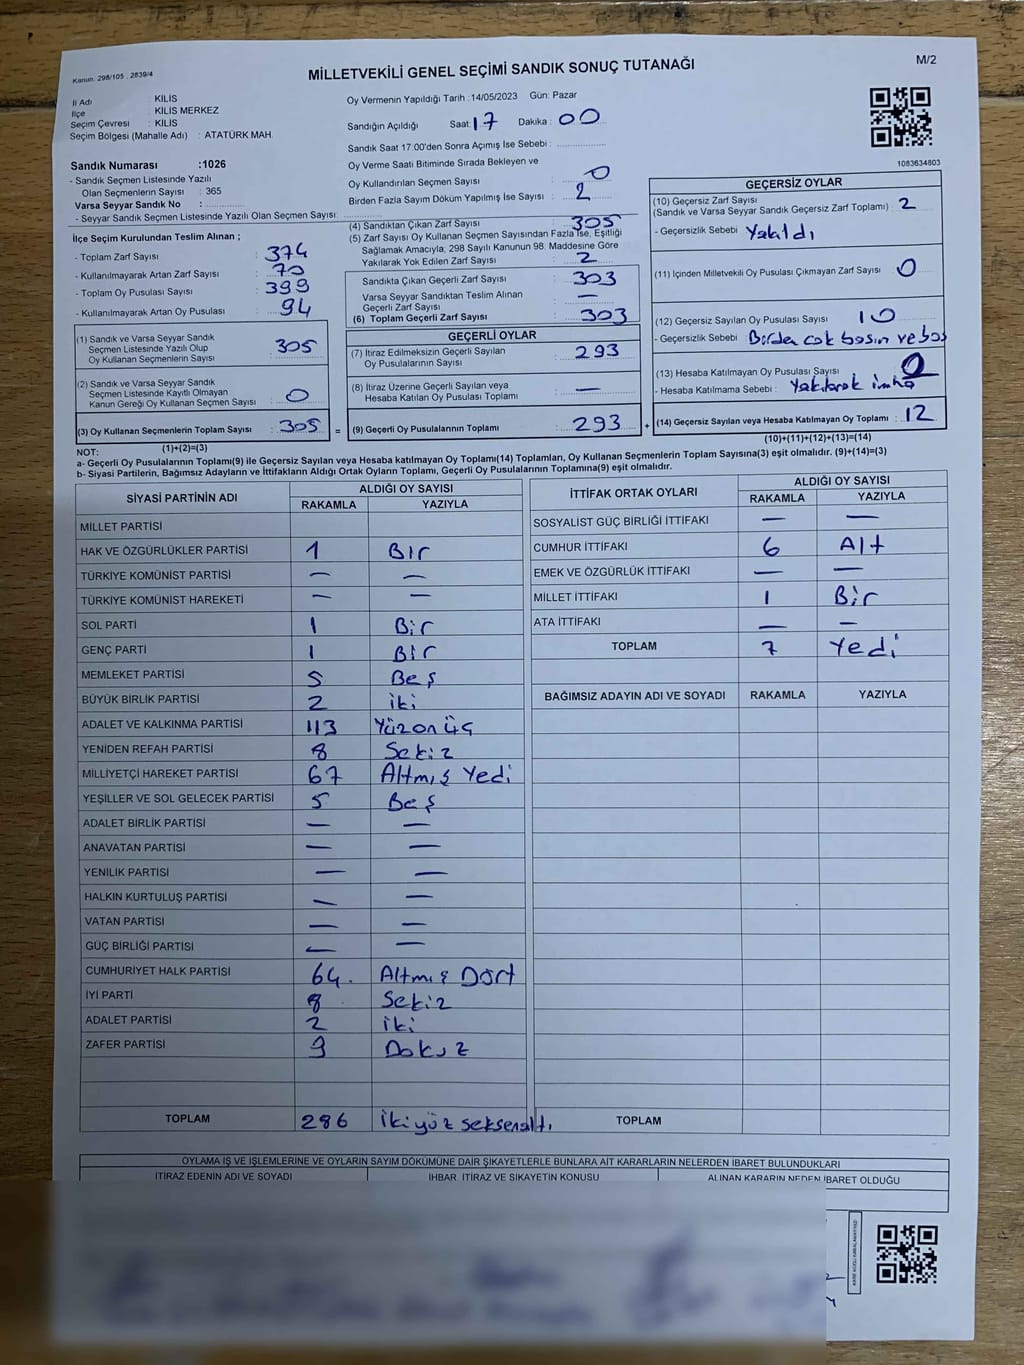 Kanun. 298/105 . 2839/4
MİLLETVEKİLİ GENEL SEÇİMİ SANDIK SONUÇ TUTANAĞI
M/2
İl Adı : KİLİS
İlçe : KİLİS MERKEZ
Seçim Çevresi : KİLİS
Seçim Bölgesi (Mahalle Adı) : ATATÜRK MAH.
Oy Vermenin Yapıldığı Tarih :14/05/2023 Gün: Pazar
Sandığın Açıldığı Saat: 17 Dakika : 00
Sandık Saat 17:00'den Sonra Açımış İse Sebebi :
1083634803
Sandık Numarası :1026
- Sandık Seçmen Listesinde Yazılı
Olan Seçmenlerin Sayısı : 365
Varsa Seyyar Sandık No :
- Seyyar Sandık Seçmen Listesinde Yazılı Olan Seçmen Sayısı:
Oy Verme Saati Bitiminde Sırada Bekleyen ve
Oy Kullandırılan Seçmen Sayısı : 0
Birden Fazla Sayım Döküm Yapılmış İse Sayısı : 2
İlçe Seçim Kurulundan Teslim Alınan ;
- Toplam Zarf Sayısı : 374
- Kullanılmayarak Artan Zarf Sayısı : 70
- Toplam Oy Pusulası Sayısı : 399
- Kullanılmayarak Artan Oy Pusulası : 94
(1) Sandık ve Varsa Seyyar Sandık
Seçmen Listesinde Yazılı Olup
Oy Kullanan Seçmenlerin Sayısı : 305
(2) Sandık ve Varsa Seyyar Sandık
Seçmen Listesinde Kayıtlı Olmayan
Kanun Gereği Oy Kullanan Seçmen Sayısı : 0
(3) Oy Kullanan Seçmenlerin Toplam Sayısı : 305
(1)+(2)=(3)
(4) Sandıktan Çıkan Zarf Sayısı : 305
(5) Zarf Sayısı Oy Kullanan Seçmen Sayısından Fazla İse, Eşitliği
Sağlamak Amacıyla; 298 Sayılı Kanunun 98. Maddesine Göre
Yakılarak Yok Edilen Zarf Sayısı : 2
Sandıkta Çıkan Geçerli Zarf Sayısı : 303
Varsa Seyyar Sandıktan Teslim Alınan
Geçerli Zarf Sayısı : —
(6) Toplam Geçerli Zarf Sayısı : 303
GEÇERLİ OYLAR
(7) İtiraz Edilmeksizin Geçerli Sayılan
Oy Pusulalarının Sayısı : 293
(8) İtiraz Üzerine Geçerli Sayılan veya
Hesaba Katılan Oy Pusulası Toplamı : —
= (9) Geçerli Oy Pusulalarının Toplamı : 293 +
GEÇERSİZ OYLAR
(10) Geçersiz Zarf Sayısı
(Sandık ve Varsa Seyyar Sandık Geçersiz Zarf Toplamı) : 2
- Geçersizlik Sebebi : Yakıldı
(11) İçinden Milletvekili Oy Pusulası Çıkmayan Zarf Sayısı : 0
(12) Geçersiz Sayılan Oy Pusulası Sayısı : 10
- Geçersizlik Sebebi : Birden cok basın ve boş
(13) Hesaba Katılmayan Oy Pusulası Sayısı : 0
- Hesaba Katılmama Sebebi : Yakılarak imha
(14) Geçersiz Sayılan veya Hesaba Katılmayan Oy Toplamı : 12
(10)+(11)+(12)+(13)=(14)
NOT:
a- Geçerli Oy Pusulalarının Toplamı(9) ile Geçersiz Sayılan veya Hesaba katılmayan Oy Toplamı(14) Toplamları, Oy Kullanan Seçmenlerin Toplam Sayısına(3) eşit olmalıdır. (9)+(14)=(3)
b- Siyasi Partilerin, Bağımsız Adayların ve İttifakların Aldığı Ortak Oyların Toplamı, Geçerli Oy Pusulalarının Toplamına(9) eşit olmalıdır.
SİYASİ PARTİNİN ADI ALDIĞI OY SAYISI
RAKAMLA YAZIYLA
MİLLET PARTİSİ
HAK VE ÖZGÜRLÜKLER PARTİSİ 1 Bir
TÜRKİYE KOMÜNİST PARTİSİ — —
TÜRKİYE KOMÜNİST HAREKETİ — —
SOL PARTİ 1 Bir
GENÇ PARTİ 1 Bir
MEMLEKET PARTİSİ 5 Beş
BÜYÜK BİRLİK PARTİSİ 2 iki
ADALET VE KALKINMA PARTİSİ 113 Yüzonüç
YENİDEN REFAH PARTİSİ 8 Sekiz
MİLLİYETÇİ HAREKET PARTİSİ 67 Altmış Yedi
YEŞİLLER VE SOL GELECEK PARTİSİ 5 Beş
ADALET BİRLİK PARTİSİ — —
ANAVATAN PARTİSİ — —
YENİLİK PARTİSİ — —
HALKIN KURTULUŞ PARTİSİ — —
VATAN PARTİSİ — —
GÜÇ BİRLİĞİ PARTİSİ — —
CUMHURİYET HALK PARTİSİ 64. Altmış Dört
İYİ PARTİ 8 Sekiz
ADALET PARTİSİ 2 iki
ZAFER PARTİSİ 9 Dokuz
TOPLAM 286 ikiyüz seksenaltı
İTTİFAK ORTAK OYLARI ALDIĞI OY SAYISI
RAKAMLA YAZIYLA
SOSYALİST GÜÇ BİRLİĞİ İTTİFAKI — —
CUMHUR İTTİFAKI 6 Altı
EMEK VE ÖZGÜRLÜK İTTİFAKI — —
MİLLET İTTİFAKI 1 Bir
ATA İTTİFAKI — —
TOPLAM 7 Yedi
BAĞIMSIZ ADAYIN ADI VE SOYADI RAKAMLA YAZIYLA
TOPLAM
OYLAMA İŞ VE İŞLEMLERİNE VE OYLARIN SAYIM DÖKÜMÜNE DAİR ŞİKAYETLERLE BUNLARA AİT KARARLARIN NELERDEN İBARET BULUNDUKLARI
İTİRAZ EDENİN ADI VE SOYADI İHBAR, İTİRAZ VE ŞİKAYETİN KONUSU ALINAN KARARIN NEDEN İBARET OLDUĞU